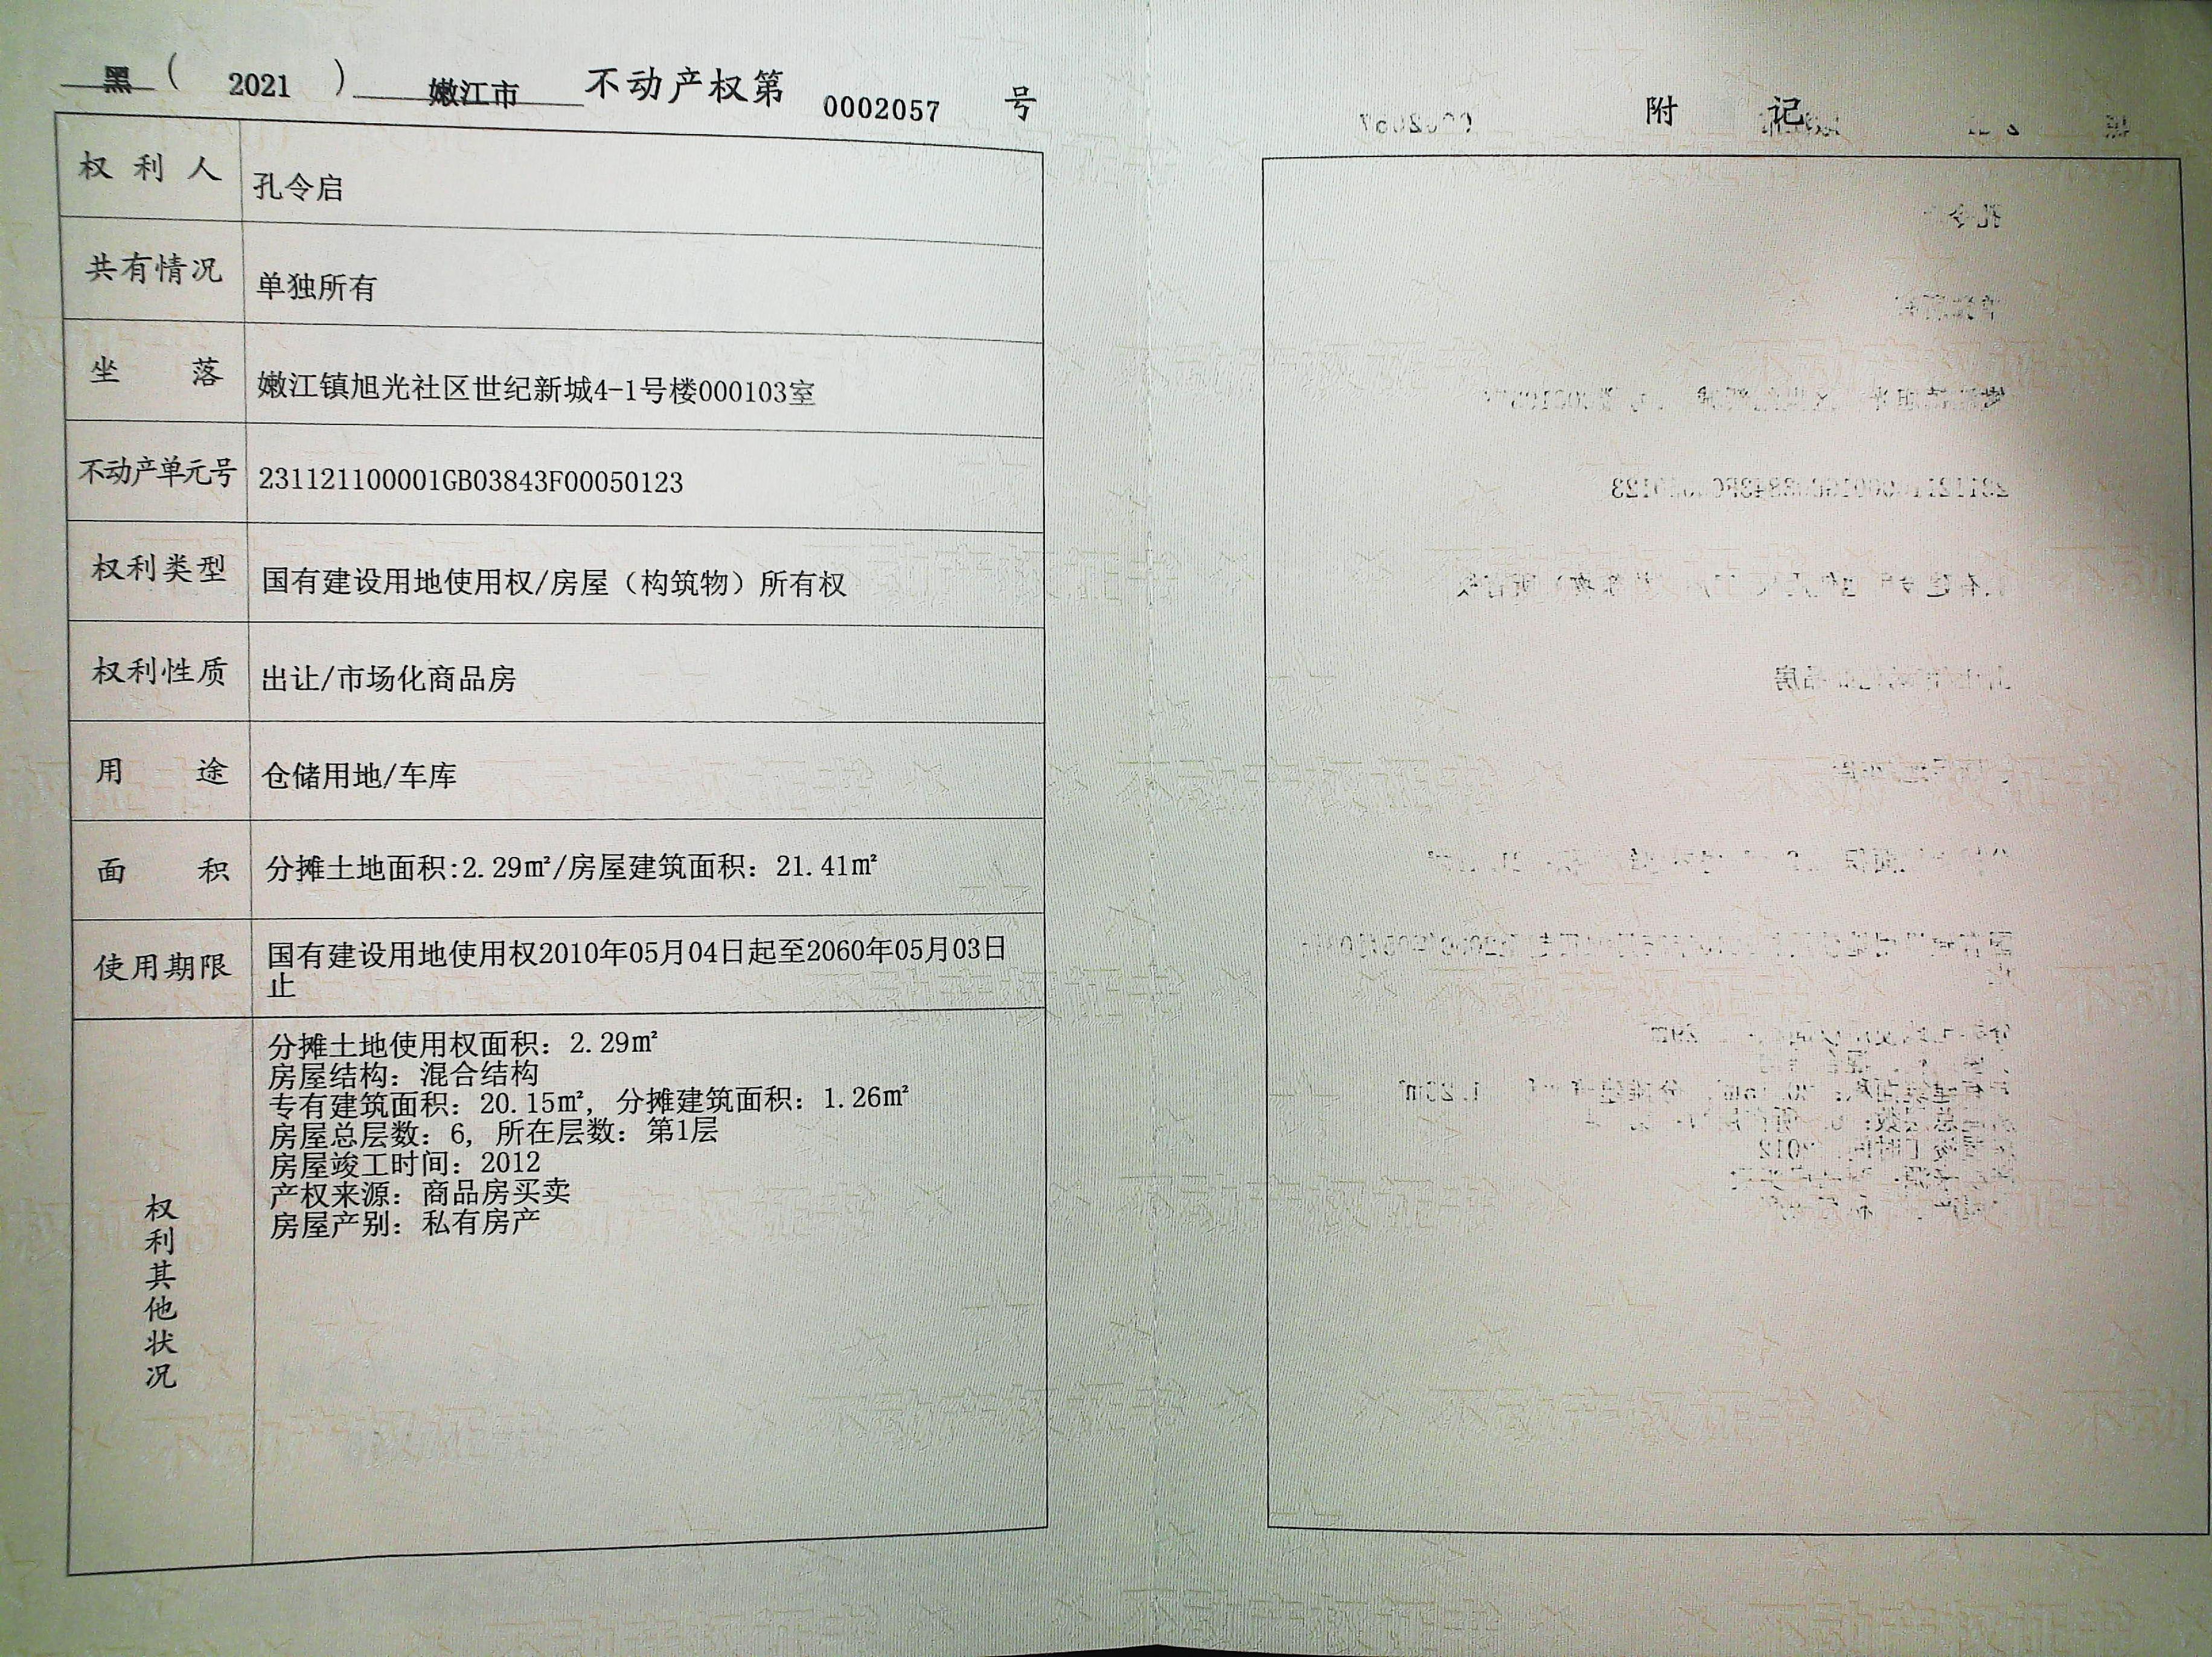 黑 ( 2021 ) 嫩江市 不动产权第 0002057 号
权利人 孔令启
共有情况 单独所有
坐落 嫩江镇旭光社区世纪新城4-1号楼000103室
不动产单元号 231121100001GB03843F00050123
权利类型 国有建设用地使用权/房屋（构筑物）所有权
权利性质 出让/市场化商品房
用途 仓储用地/车库
面积 分摊土地面积:2.29㎡/房屋建筑面积：21.41㎡
使用期限 国有建设用地使用权2010年05月04日起至2060年05月03日
止
权利其他状况
分摊土地使用权面积：2.29㎡
房屋结构：混合结构
专有建筑面积：20.15㎡，分摊建筑面积：1.26㎡
房屋总层数：6，所在层数：第1层
房屋竣工时间：2012
产权来源：商品房买卖
房屋产别：私有房产
附记